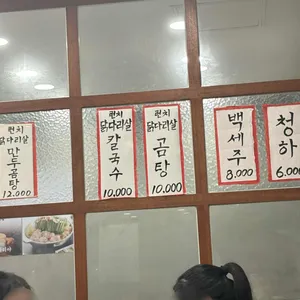 런치
닭다리살
만두곰탕
12.000
런치
닭다리살
칼국수
10.000
런치
닭다리살
곰탕
10.000
백세주
8.000
청하
6.000